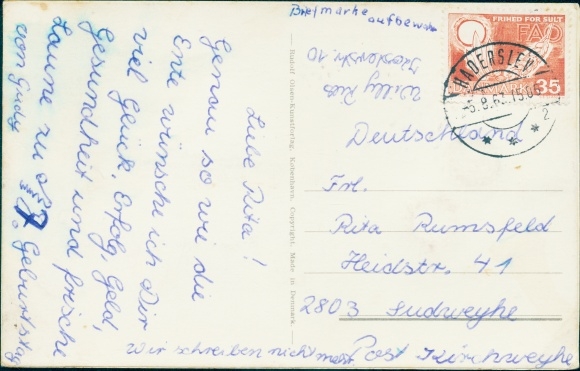 Liebe Rita!
Genau so wie die
Ente wünsche ich Dir
viel Glück, Erfolg, Geld,
Gesundheit und frische
Laune zu
7. Geburtstag
von
Wir schreiben nicht mehr
Rudolf Olsens Kunstforlag, Kobenhavn. Copyright. Made in Denmark.
Briefmarke
aufbewahr
Willy
10
FRIHED FOR SULT
FAO
DANMARK 35
HADERSLEV
-5.8.63.
2
Deutschland
Frl.
Rita Rumsfeld
Heidstr. 41
2803 Sudweyhe
Post Kirchweyhe